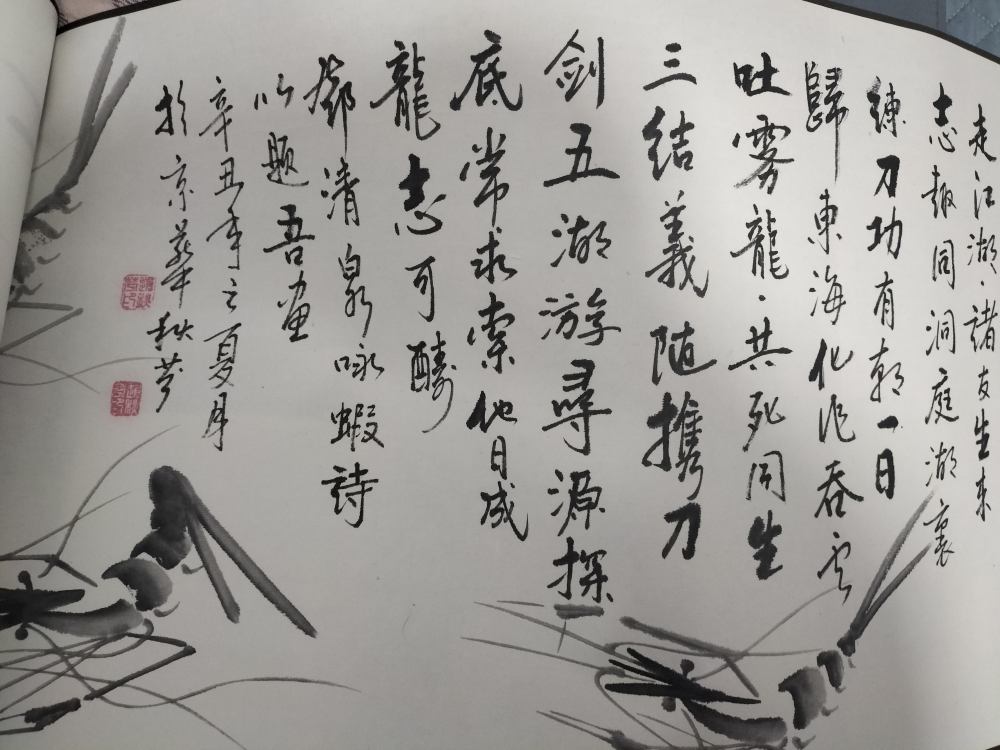 走江湖、諸友生來
志趣同洞庭湖裏
練刀功有朝一日
歸東海化作吞雲
吐雾龍.共死同生
三結義随携刀
剑五湖游尋源探
底常求索他日成
龍志可酬
鄧清泉咏蝦詩
以题吾画
辛丑年之夏月
扵京華秋梦